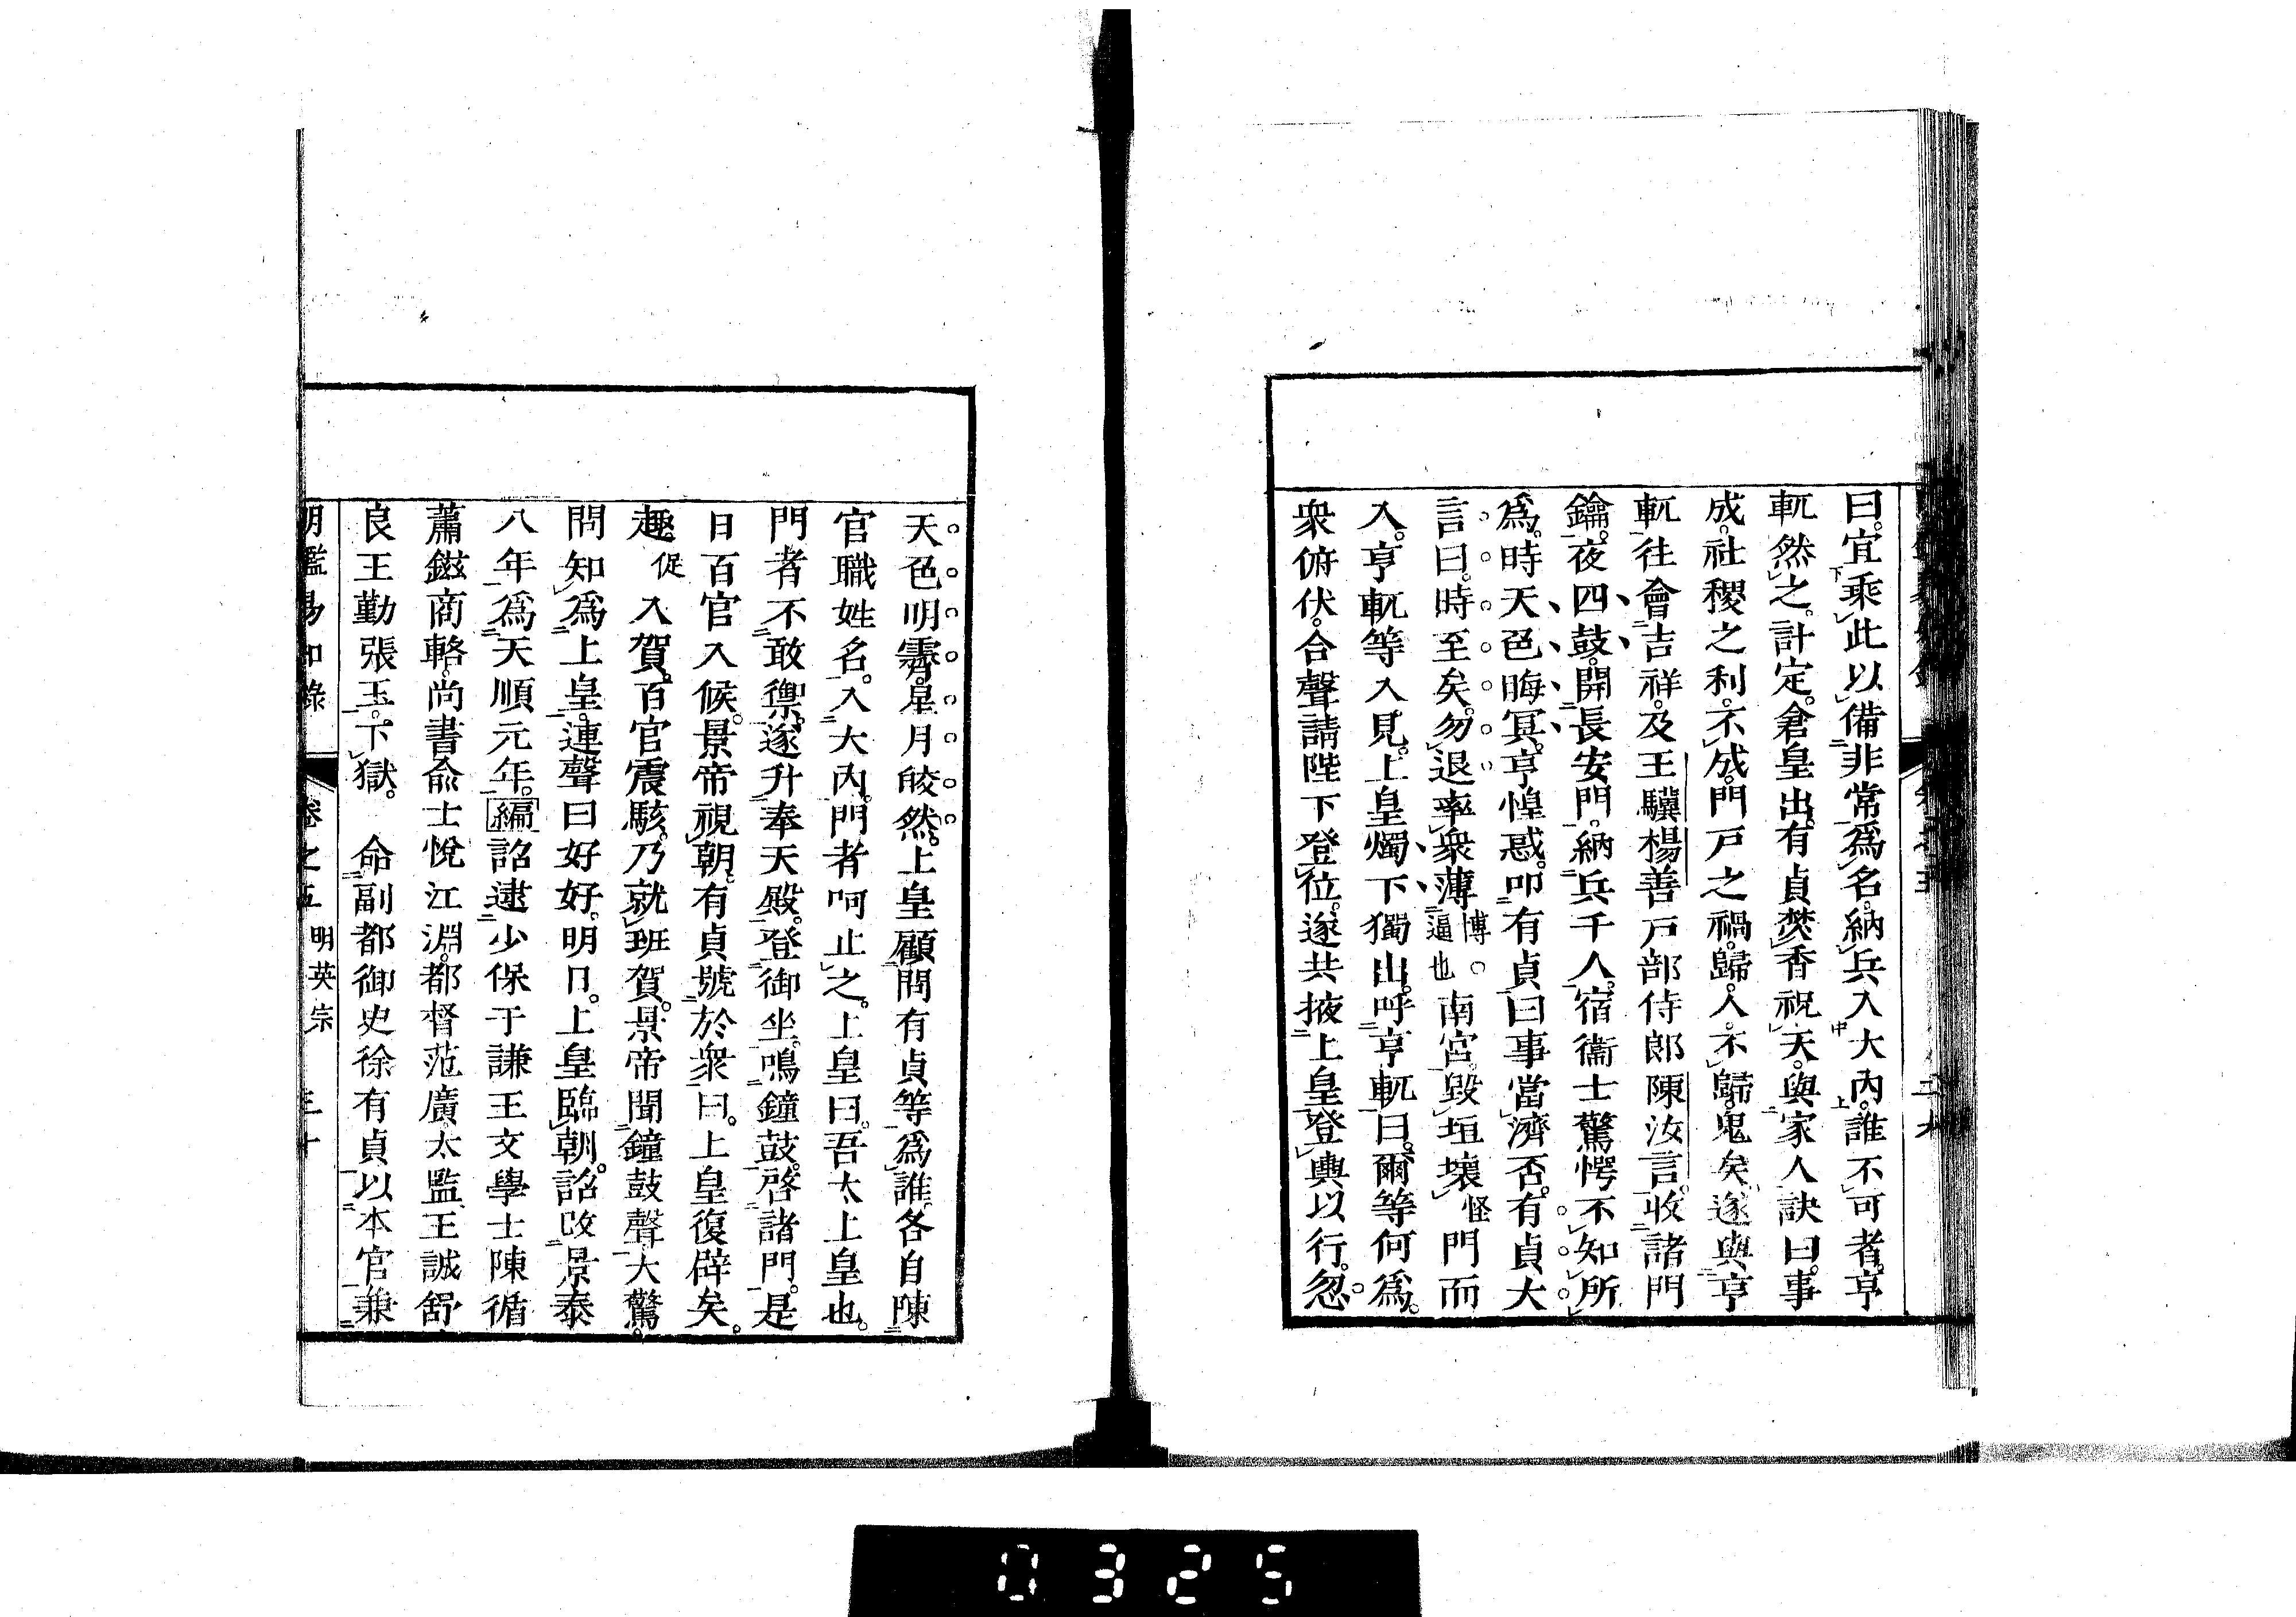 曰。宜乘此以備非常爲名。納兵入大內。誰不可者。亨
軏然之。計定。倉皇出。有貞焚香祝天。與家人訣曰。事
成。社稷之利。不成。門戸之禍。歸。人。不歸。鬼矣。遂與亨
軏往會吉祥。及王驥楊善戸部侍郎陳汝言。收諸門
鑰。夜四鼓。開長安門。納兵千人。宿衞士驚愕不知所
爲。時天色晦冥。亨惶惑。叩有貞曰事當濟否。有貞大
言曰。時至矣。勿退率衆薄博。逼也南宮。毀垣壞怪門而
入。亨軏等入見。上皇燭下獨出。呼亨軏曰。爾等何爲。
衆俯伏。合聲請陛下登位。遂共掖上皇登輿以行。忽
天色明霽。星月皎然。上皇顧問有貞等爲誰。各自陳
官職姓名。入大內。門者呵止之。上皇曰。吾太上皇也。
門者不敢禦。遂升奉天殿。登御坐。鳴鐘鼓。啓諸門。是
日百官入候。景帝視朝。有貞號於衆曰。上皇復辟矣。
趣促入賀。百官震駭。乃就班賀。景帝聞鐘鼓聲大驚。
問知爲上皇。連聲曰好好。明日。上皇臨朝。詔改景泰
八年爲天順元年。編詔逮少保于謙王文學士陳循
蕭鎡商輅。尚書俞士悅江淵。都督范廣。太監王誠舒
良王勤張玉。下獄。 命副都御史徐有貞以本官兼
明鑑易知錄 卷之五 明英宗 三十
0325